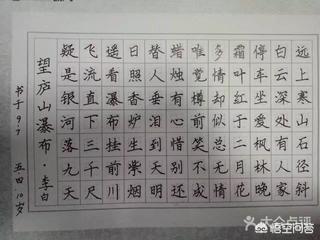 远上寒山石径斜
白云深处有人家
停车坐爱枫林晚
霜叶红于二月花
多情却似总无情
唯觉樽前笑不成
蜡烛有心还惜别
替人垂泪到天明
日照香炉生紫烟
遥看瀑布挂前川
飞流直下三千尺
疑是银河落九天
望庐山瀑布·李白
书于97 五四 10岁
大众点评
悟空问答